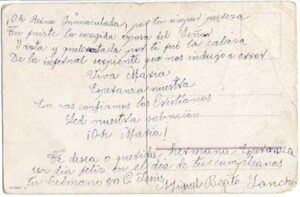 ¡Oh Reina Inmaculada, por tu sin par pureza
Tu fuiste la escogida esposa del Señor
Y rota y quebrantada por ti fué la cabeza
De la infernal serpiente que nos indujo a error
Viva Maria
Esperanza nuestra
En vos confiamos los Cristianos
Sed nuestra salvación
¡Oh Maria!
Te desea o querida hermana Esperanza
un dia feliz en el dia de tu cumpleaños
tu hermano en
Miguel Benito Sanchez